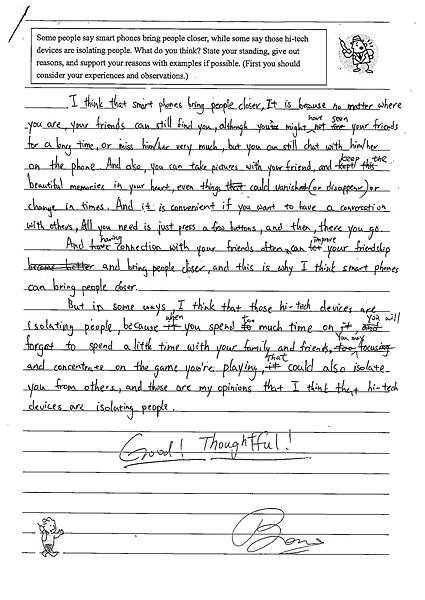 Some people say smart phones bring people closer, while some say those hi-tech
devices are isolating people. What do you think? State your standing, give out
reasons, and support your reasons with examples if possible. (First you should
consider your experiences and observations.)
I think that smart phones bring people closer, It is because no matter where
you are, your friends can still find you, although you might not have seen your friends
for a long time, or miss him/her very much, but you can still chat with him/her
on the phone. And also, you can take pictures with your friend, and keep the
beautiful memories in your heart, even thing could vanished (or disappear) or
change in times. And it is convenient if you want to have a conversation
with others, All you need is just press a few buttons, and then, there you go.
And having connection with your friends often, can improve your friendship
become better and bring people closer, and this is why I think smart phones
can bring people closer.
But in some ways, I think that those hi-tech devices are
isolating people, because when you spend too much time on it, you will
forget to spend a little time with your family and friends, you may focusing
and concentrate on the game you're playing, that could also isolate
you from others, and those are my opinions that I think that hi-tech
devices are isolating people.
Good! Thoughtful!